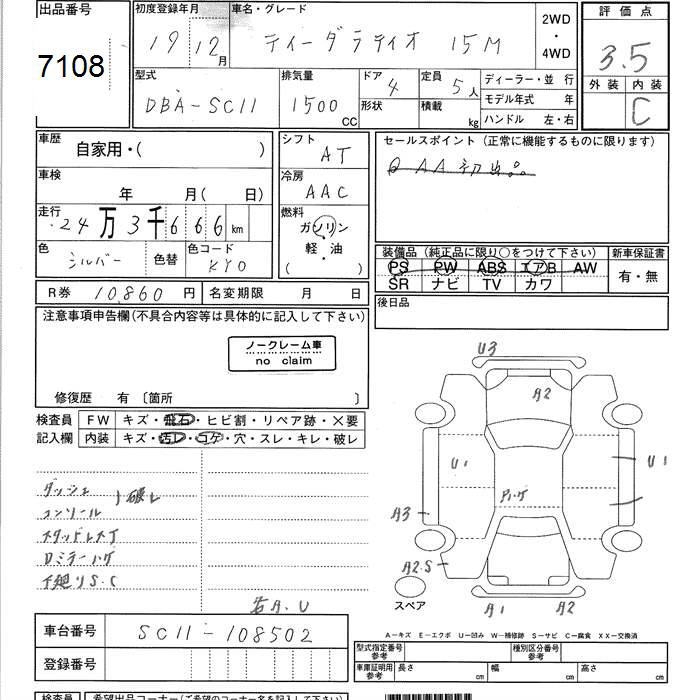 出品番号
7108
初度登録年月
19 12月
車名・グレード
ティーダラティオ 15M
2WD
・
4WD
評価点
3.5
外装 内装
C
型式
DBA-SC11
排気量
1500 CC
ドア 4
形状
定員 5人
積載 kg
ディーラー・並 行
モデル年式 年
ハンドル 左・右
車歴
自家用・( )
車検
年 月( 日)
走行
24万3千666km
色 シルバー 色替
色コード KY0
シフト AT
冷房 AAC
燃料
ガソリン
軽・油
( )
セールスポイント (正常に機能するものに限ります)
AA 初出品
装備品 (純正品に限り○をつけて下さい)
PS PW ABS エアB AW
SR ナビ TV カワ
新車保証書
有・無
R券 10860 円 名変期限 月 日
後日品
注意事項申告欄(不具合内容等は具体的に記入して下さい)
ノークレーム車
no claim
修復歴 有 〔箇所 〕
検査員 FW キズ・飛石・ヒビ割・リペア跡・×要
記入欄 内装 キズ・汚レ・コゲ・穴・スレ・キレ・破レ
ダッシュ
コンソール
破レ
スタッドレス
Dミラーハゲ
下廻りS.C
若A.U
U3
A2
U1
U1
ハゲ
A3
A2.S
A1
A2
スペア
A−キズ E−エクボ U−凹み W−補修跡 S−サビ C−腐食 XX−交換済
車台番号 SC11-108502
登録番号
型式指定番号 参考
種別区分番号 参考
車庫証明用 参考
長さ cm 幅 cm 高さ cm
検査員 希望出品コーナー(ご希望のコーナー名を記入下さい)